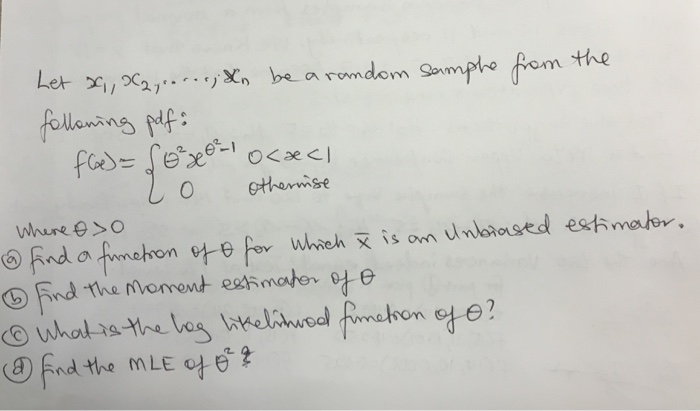 Let x₁, x₂, ....., xₙ be a random sample from the
following pdf:
f(x) = { θ² x^(θ²-1) 0<x<1
0 otherwise
where θ>0
ⓐ find a function of θ for which x̄ is an Unbiased estimator.
ⓑ Find the Moment estimator of θ
ⓒ What is the log likelihood function of θ?
ⓓ find the MLE of θ²?